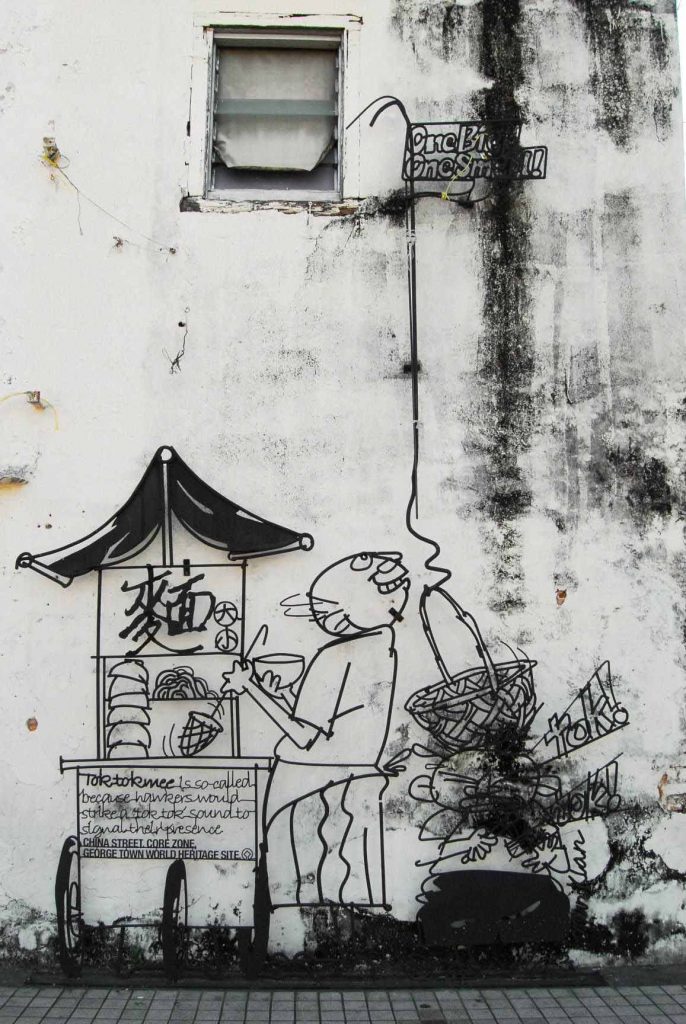 One Big
One Small!!
麵
大
小
Tok tok mee is so-called
because hawkers would
strike a tok tok sound to
signal their presence
CHINA STREET, CORE ZONE,
GEORGE TOWN WORLD HERITAGE SITE
Tok!
Tok!